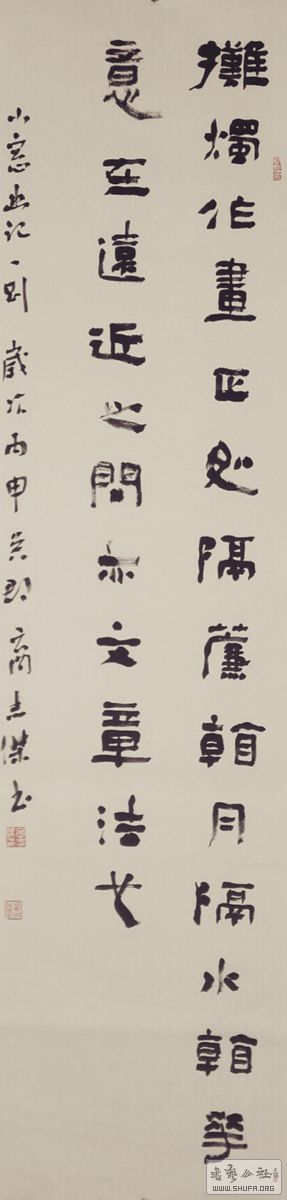 攤燭作畫正如隔簾看月隔水看花
意在遠近之間亦文章法也
小窓幽記一則 歲次丙申吳郡商傑書
書藝公社
WWW.SHUFA.ORG